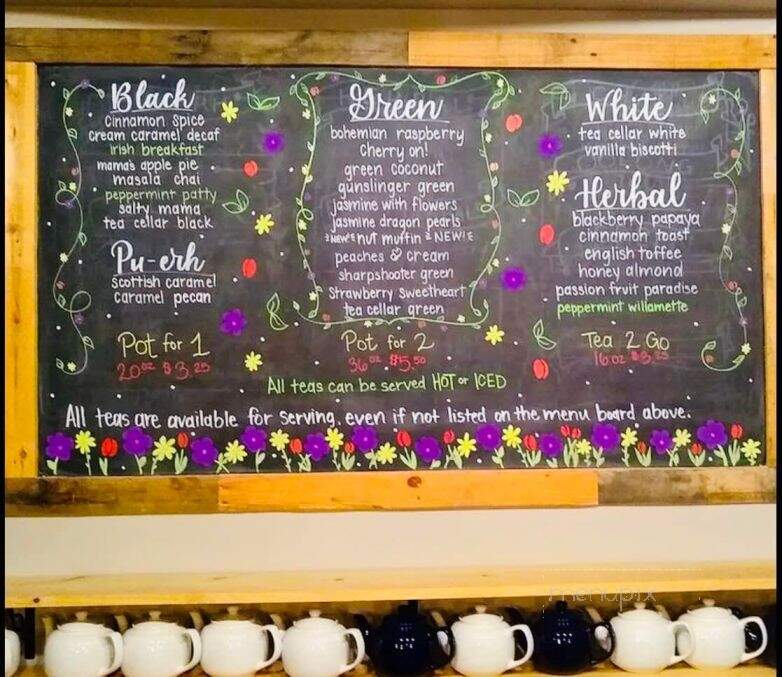 Black
cinnamon spice
cream caramel decaf
irish breakfast
mama's apple pie
masala chai
peppermint patty
salty mama
tea cellar black
Pu-erh
Scottish caramel
caramel pecan
Pot for 1
20oz $3.25
Green
bohemian raspberry
Cherry on!
green coconut
gunslinger green
jasmine with flowers
jasmine dragon pearls
NEW! nut muffin NEW!
peaches & cream
sharpshooter green
Strawberry Sweetheart
tea cellar green
Pot for 2
36oz $5.50
White
tea cellar white
vanilla biscotti
Herbal
blackberry papaya
cinnamon toast
english toffee
honey almond
passion fruit paradise
peppermint willamette
Tea 2 Go
16oz $3.25
All teas can be served HOT or ICED
All teas are available for serving, even if not listed on the menu board above.
menupix